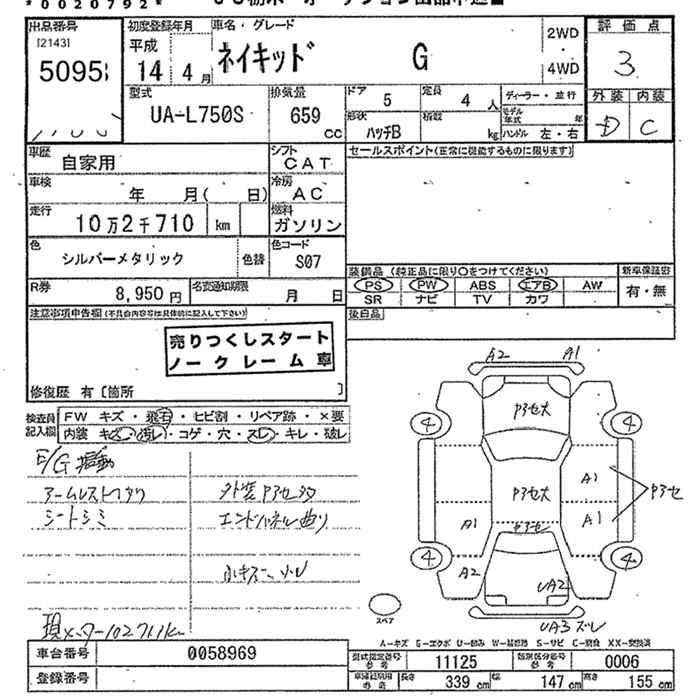 *0020792*
出品番号 初度登録年月 車名・グレード 2WD 評価点
[2143] 平成 ネイキッド G
5095 14 4月 4WD 3
型式 排気量 ドア 5 定員 4人 ディーラー・並行 外装 内装
UA-L750S 659 cc 形状 ハッチB 積載 kg モデル年式 年 D C
ハンドル 左・右
車歴 自家用 シフト CAT セールスポイント(正常に機能するものに限ります)
車検 年 月( 日) 冷房 AC
走行 10万2千710 km 燃料 ガソリン
色 シルバーメタリック 色替 色コード S07
装備品(純正品に限り○をつけてください) 新車保証書
R券 8,950円 名変通知期限 月 日 PS PW ABS エアB AW 有・無
SR ナビ TV カワ
注意事項申告欄(不具合内容等は具体的に記入して下さい) 後日品
売りつくしスタート
ノークレーム車
修復歴 有〔箇所 〕
検査員記入欄 FW キズ・飛石・ヒビ割・リペア跡・×要
内装 キズ・汚れ・コゲ・穴・スレ・キレ・破レ
A2 A1
4 P3セ大 4
E/G振動
アームレスト
シートシミ
外装P3セ
エンドパネル曲り
小キズ
P3セ大 A1 P3セ
A1 A1
P3セ
4 A2 UA2 4
スペア UA3 ズレ
現メーター102711km
A-キズ G-エクボ U-凹み W-補修跡 S-サビ C-腐食 XX-交換済
車台番号 0058969 型式指定番号 参考 11125 類別区分番号 参考 0006
登録番号 長さ 339cm 幅 147cm 高さ 155cm